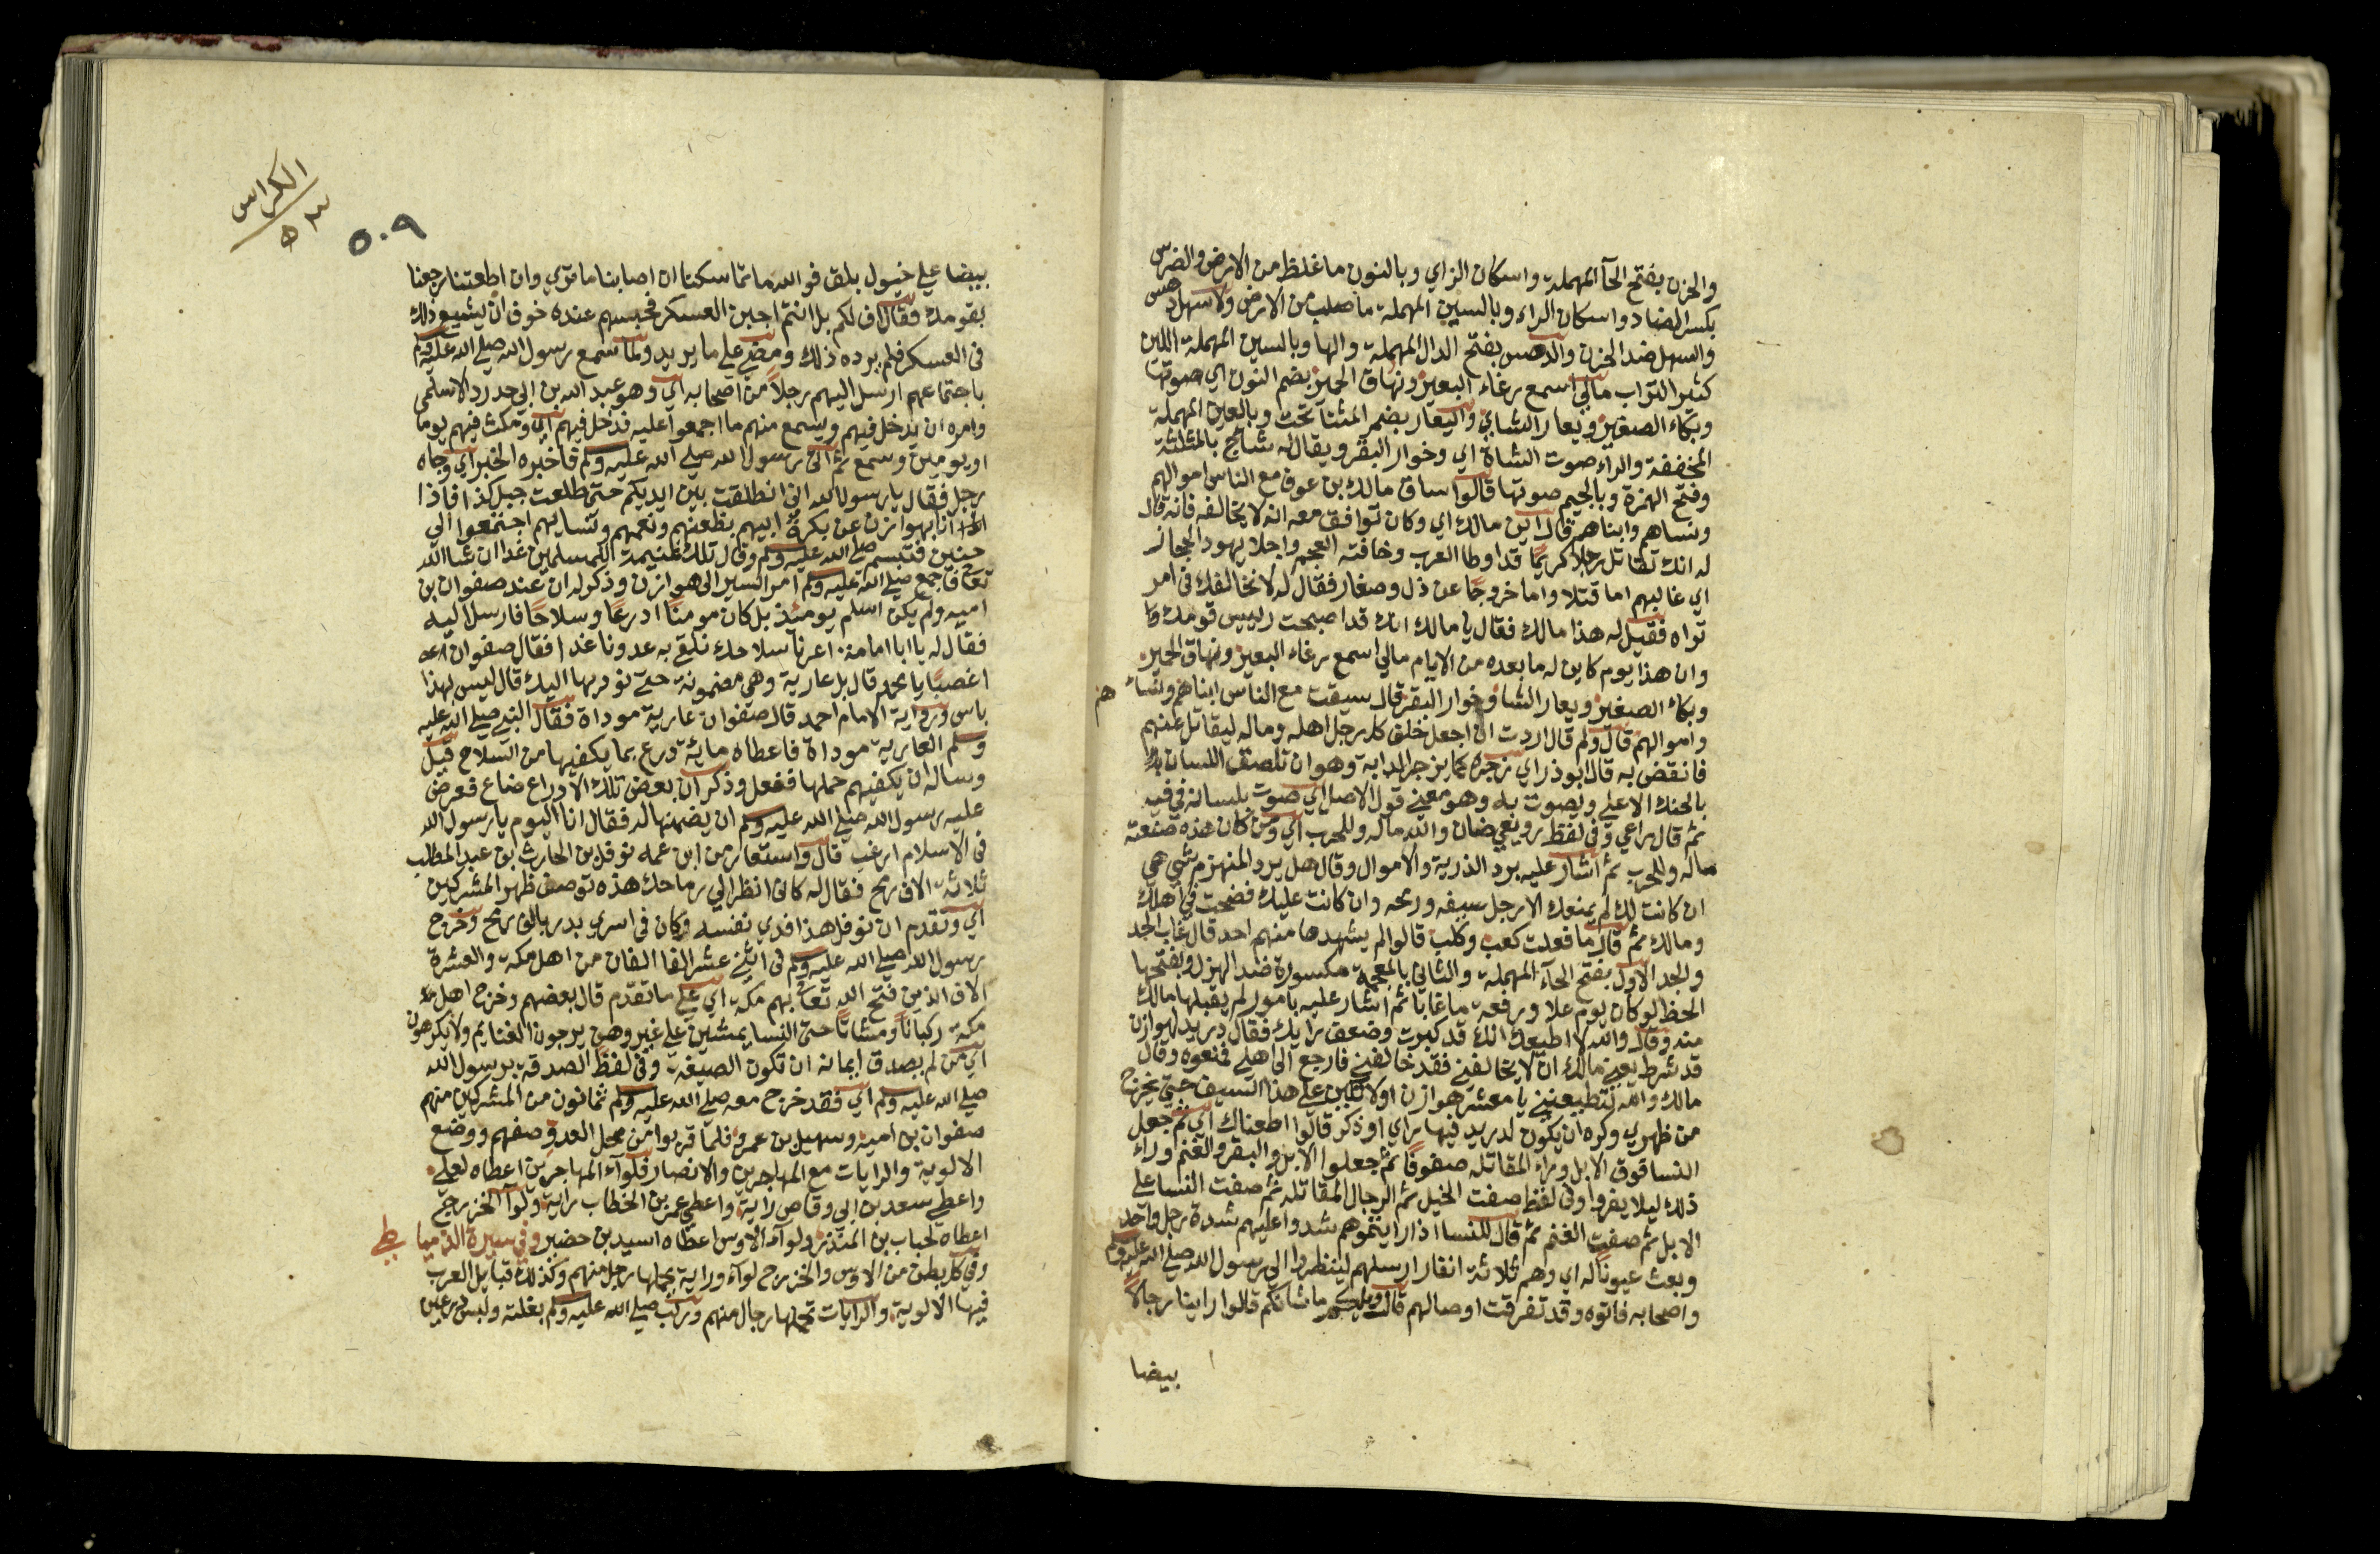 والحزن بفتح الحآ المهملة واسكان الزاي وبالنون ما غلظ من الارض والضرس
بكسر الضاد واسكان الراء وبالسين المهملة ما صلب من الارض ولا سهل دهس
والسهل ضد الحزن والدهس بفتح الدال المهملة والها وبالسين المهملة اللين
كثير التراب مالي اسمع رغاء البعير ونهاق الحمير بضم النون اي صوتها
وبكاء الصغير ويعار الشاي واليعار بضم المثناة تحت وبالعين المهملة
المخففة والراء صوت الشاة اي وخوار البقر ويقال له شائج بالمثلثة
وفتح الهمزة وبالجيم صوتها قالوا ساق مالك بن عوف مع الناس اموالهم
ونساهم وابناهم قال اين مالك اي وكان توافق معه انه لا يخالفه فانه قال
له انك تقاتل رجلا كريما قد اوطا العرب وخافته العجم واجلا يهود الحجاز
اي غالبهم اما قتلا واما خروجا عن ذل وصغار فقال له لا نخالفك في امر
تراه فقيل له هذا مالك فقال يا مالك انك قد اصبحت رييس قومك
وان هذا يوم كاين له ما بعده من الايام مالي اسمع رغاء البعير ونهاق الحمير
وبكاء الصغير ويعار الشا وخوار البقر قال سيقت مع الناس ابناهم ونساهم
واموالهم قال ولم قال اردت ان اجعل خلق كل رجل اهله وماله ليقاتل عنهم
فانقض به قال ابوذر اي زجره كما يزجر الدابة وهو ان تلصق اللسان
بالحنك الاعلي ويصوت به وهو معني قول الاصل اي صوت بلسانه في فيه
ثم قال راعي وفي لفظ رويعي ضان والله ماله وللحرب اي ومن كان هذه صنعته
ماله وللحرب ثم اشار عليه برد الذرية والاموال وقال هل يرد المنهزم شي هي
ان كانت لك لم ينفعك الا رجل سيفه ورمحه وان كانت عليك فضحت في اهلك
ومالك ثم قال ما فعلت كعب وكلاب قالوا لم يشهدها منهم احد قال غاب الحد
والجد الاول بفتح الحآء المهملة والثاني بالمعجمة مكسورة ضد الهزل وبفتحها
الحظ لو كان يوم علا ورفعة ما غابا ثم اشار عليه بامور لم يقبلها مالك
منه وقال والله لا اطيعك انك قد كبرت وضعف رايك فقال دريد لهوازن
قد شرط يعني مالك ان لا يخالفني فقد خالفني فارجع الي اهلي فمنعوه وقال
مالك والله لتطيعنني يا معشر هوازن او لاتكين علي هذا السيف حتي يخرج
من ظهري وكره ان يكون لدريد فيها راي او ذكر قالوا اطعناك اي ثم جعل
النسا فوق الابل وراء المقاتلة صفوفا ثم جعلوا الابل والبقر والغنم وراء
ذلك ليلا يفروا وفي لفظ صفت الخيل ثم الرجال المقاتله ثم صفت النسا علي
الابل ثم صفت الغنم ثم قال للنسا اذا رايتموهم شدوا عليهم شدة رجل واحد
وبعث عيونا له اي وهم ثلاثة انفار ارسلهم لينظروا الي رسول الله صلي الله عليه وسلم
واصحابه فاتوه وقد تفرقت اوصالهم قالت ويلكم ما شانكم قالوا راينا رجالا
بيضا
الكراس
٥٣
٥٠٩
بيضا علي خيول بلق فوالله ما تماسكنا ان اصابنا ما تري وان اطعتنا رجعنا
بقومك فقال اف لكم بل انتم اجبن العسكر فحبسهم عنده خوف ان يشيع ذلك
في العسكر فلم يرده ذلك ومضي علي ما يريد ولما سمع رسول الله صلي الله عليه وسلم
باجتماعهم ارسل اليهم رجلا من اصحابه اي وهو عبد الله بن ابي حدرد الاسلمي
وامره ان يدخل فيهم ويسمع منهم ما اجمعوا عليه فدخل فيهم اي ومكث فيهم يوما
او يومين وسمع ثم اتي رسول الله صلي الله عليه وسلم فاخبره الخبر اي وجاه
رجل فقال يا رسول الله اني انطلقت بين ايديكم حتي طلعت جبل كذا فاذا
انا بهوازن عن بكرة ابيهم بظعنهم ونعمهم ونسايهم اجتمعوا الي
حنين فتبسم صلي الله عليه وسلم وقال تلك غنيمة المسلمين غدا ان شا الله
تعالي فاجمع صلي الله عليه وسلم امر السير الي هوازن وذكر له ان عند صفوان بن
اميه ولم يكن اسلم يومئذ بل كان مومنا ادرعا وسلاحا فارسل اليه
فقال له يا ابا امامة اعرنا سلاحك نلقي به عدونا غدا فقال صفوان
اغصبا يا محمد قال بل عارية وهي مضمونة حتي نوديها اليك قال ليس بهذا
باس وفي رواية الامام احمد قال صفوان عارية موداة فقال النبي صلي الله عليه
وسلم العارية موداة فاعطاه ماية درع بما يكفيها من السلاح قيل
وساله ان يكفيهم حملها ففعل وذكر ان بعض تلك الادراع ضاع فعرض
عليه رسول الله صلي الله عليه وسلم ان يضمنها له فقال انا اليوم يا رسول الله
في الاسلام ارغب قال واستعار من ابن عمه نوفل بن الحارث ابن عبد المطلب
ثلاثة الاف رمح فقال له كاني انظر الي رماحك هذه توصف ظهر المشركين
اي وتقدم ان نوفل هذا فدي نفسه وكان في اسري بدر بالف رمح وخرج
رسول الله صلي الله عليه وسلم في اثني عشر الفا الفان من اهل مكة والعشرة
الاف الذين فتح الله تعالي بهم مكة اي علي ما تقدم قال بعضهم وخرج اهل
مكة ركبانا ومشاتا حتي النسا يمشين علي غير وهن يرجون الغنايم ولا يكرهون
اي من لم يصدق ايمانه ان تكون الصيغة وفي لفظ الصدقة برسول الله
صلي الله عليه وسلم اي فقد خرج معه صلي الله عليه وسلم ثمانون من المشركين منهم
صفوان بن اميه وسهيل بن عمرو فلما قربوا من محل العدو صفهم ووضع
الالوية والرايات مع المهاجرين والانصار فلوآء المهاجرين اعطاه لعلي
واعطي سعد بن ابي وقاص راية واعطي عمر بن الخطاب راية ولوآ الخزرج
اعطاه لحباب بن المنذر ولوآء الاوس اعطاه اسيد بن حضير وفي سيرة الدمياطي
وفي كل بطن من الاوس والخزرج لوآء وراية يحملها رجل منهم وكذلك قبايل العرب
فيها الالوية والرايات تحملها رجال منهم وركب صلي الله عليه وسلم بغلته ولبس درعين